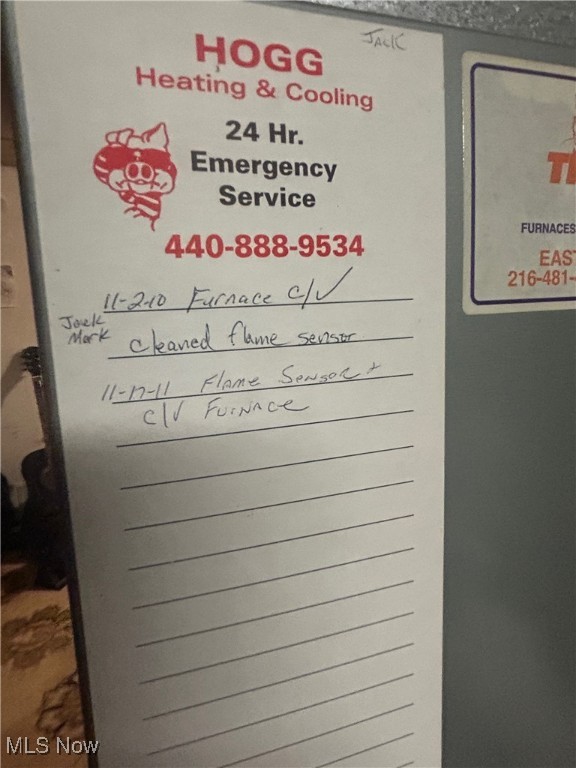 Jack
HOGG
Heating & Cooling
24 Hr.
Emergency
Service
440-888-9534
11-2-10 Furnace C/V
Jack
Mark
cleaned flame sensor
11-17-11 Flame Sensor +
C/V Furnace
FURNACES
EAS
216-481-
MLS Now